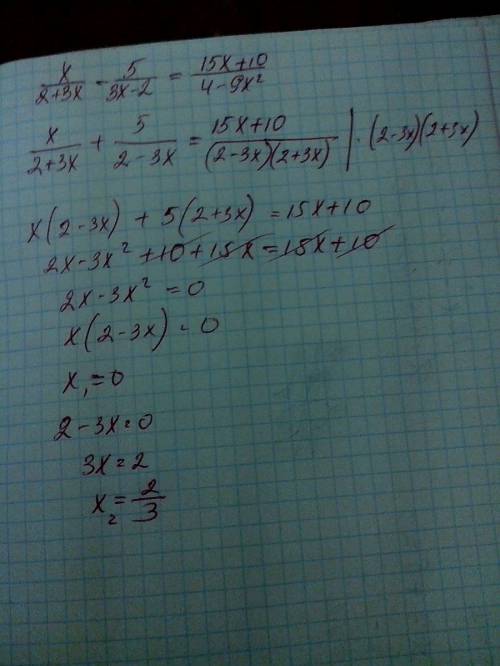 x/(2+3x) - 5/(3x-2) = (15x+10)/(4-9x²)
x/(2+3x) + 5/(2-3x) = (15x+10)/((2-3x)(2+3x)) | · (2-3x)(2+3x)
x(2-3x) + 5(2+3x) = 15x+10
2x-3x² +10+15x = 15x+10
2x-3x² = 0
x(2-3x) = 0
x₁=0
2-3x=0
3x=2
x₂=2/3